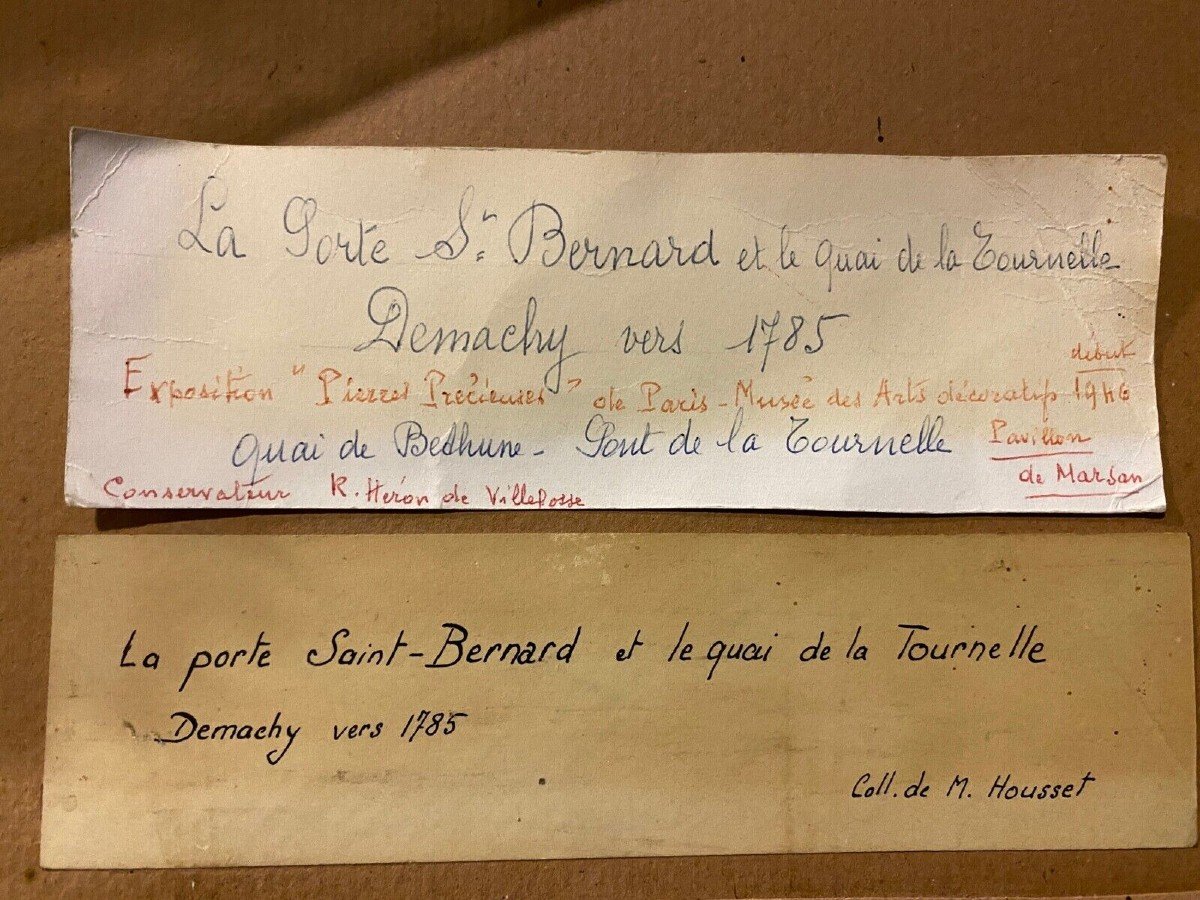 La Porte St. Bernard et le quai de la Tournelle
Demachy vers 1785
début
Exposition " Pierres Précieuses " de Paris - Musée des Arts décoratifs 1946
quai de Bethune - Pont de la Tournelle
Pavillon
de Marsan
Conservateur R. Heron de Villefosse
La porte Saint-Bernard et le quai de la Tournelle
Demachy vers 1785
Coll. de M. Housset